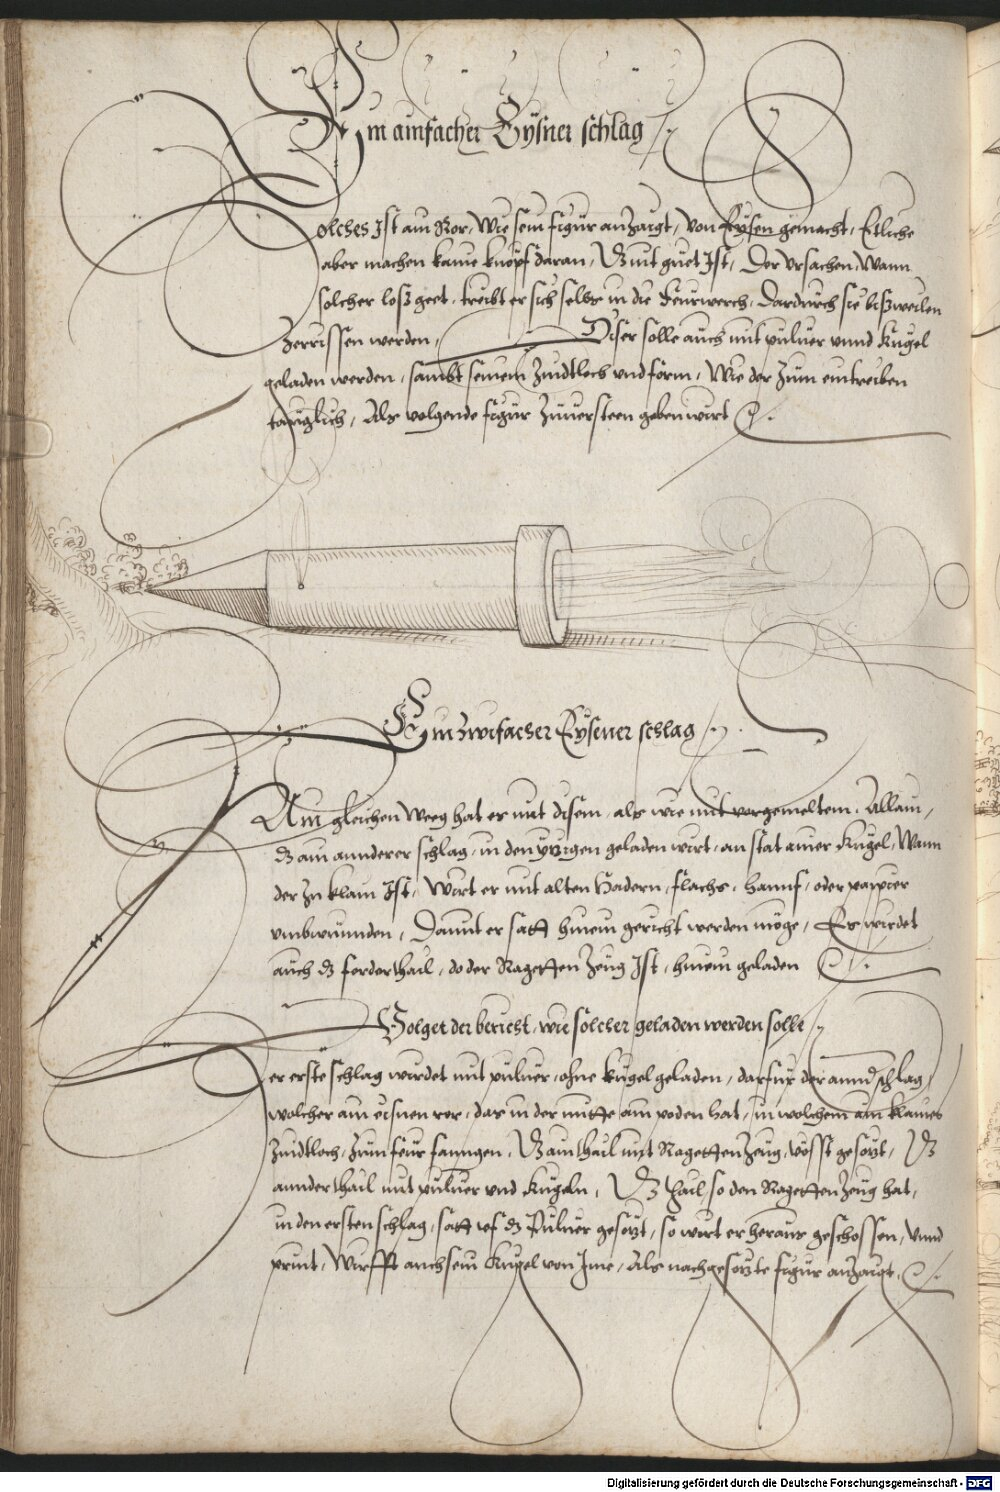 Ein ainfacher Eysner schlag
Solches Ist ain Ror, Wie sein figur anzaigt, Von Eysen gemacht, Etliche
aber machen kaine knöpf daran, Dz nit guet Ist, Der Ursachen, Wann
solcher losz geet, treibt er sich selbs in die feurwerch, Dardurch sie biszweilen
Zerrissen werden, Diser solle auch mit puluer vnnd Kugel
geladen werden, sambt seinem Zindtloch vnd form, Wie der Zum eintreiben
tauglich, Als volgende figur Zuuersteen geben wirt
Ein Zwifacher Eysener schlag
Ain gleichen Weeg hat es mit disem, als wie mit vorgemeltem, Allain,
Dz ain annderer schlag, in den yezigen geladen wirt, an stat ainer Kugel, Wann
der Zu klain Ist, Wirt er mit alten Hadern, flachs, hannf, oder pappier
vmbwunnden, Damit er satt hinein gericht werden möge, Es wirdet
auch dz forderthail, do der Ragetten Zeug Ist, hinein geladen
Volget der bericht, wie solcher geladen werden solle
Der erste schlag wirdet mit puluer, ohne kugel geladen, darfur der annd schlag,
wolcher ain eisnen ror, das in der mitte ain poden hat, in wolchem ain klaines
Zindtloch, Zum feur fanngen, Dz ain thail mit Ragetten Zeug, vösst gesezt, Dz
annder thail mit puluer vnd Kugeln, Dz thail, so den Ragetten Zeug hat,
in den ersten schlag, satt vf dz Puluer gesezt, so wirt er heraus geschossen, Vnnd
print, Wirfft auch sein Kugel von Ime, Als nachgesezte figur anzaigt
Digitalisierung gefördert durch die Deutsche Forschungsgemeinschaft - DFG